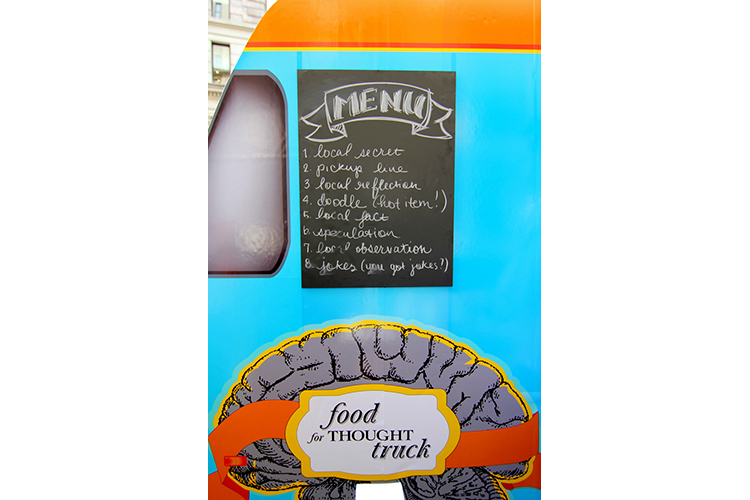 MENU
1. local secret
2. pickup line
3 local reflection
4. doodle (hot item!)
5. local fact
6 speculation
7. local observation
8. jokes (you got jokes?)
food
for THOUGHT
truck